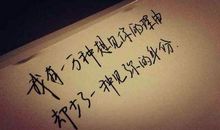 我有一万种想见你的理由
却少了一种见你的身份